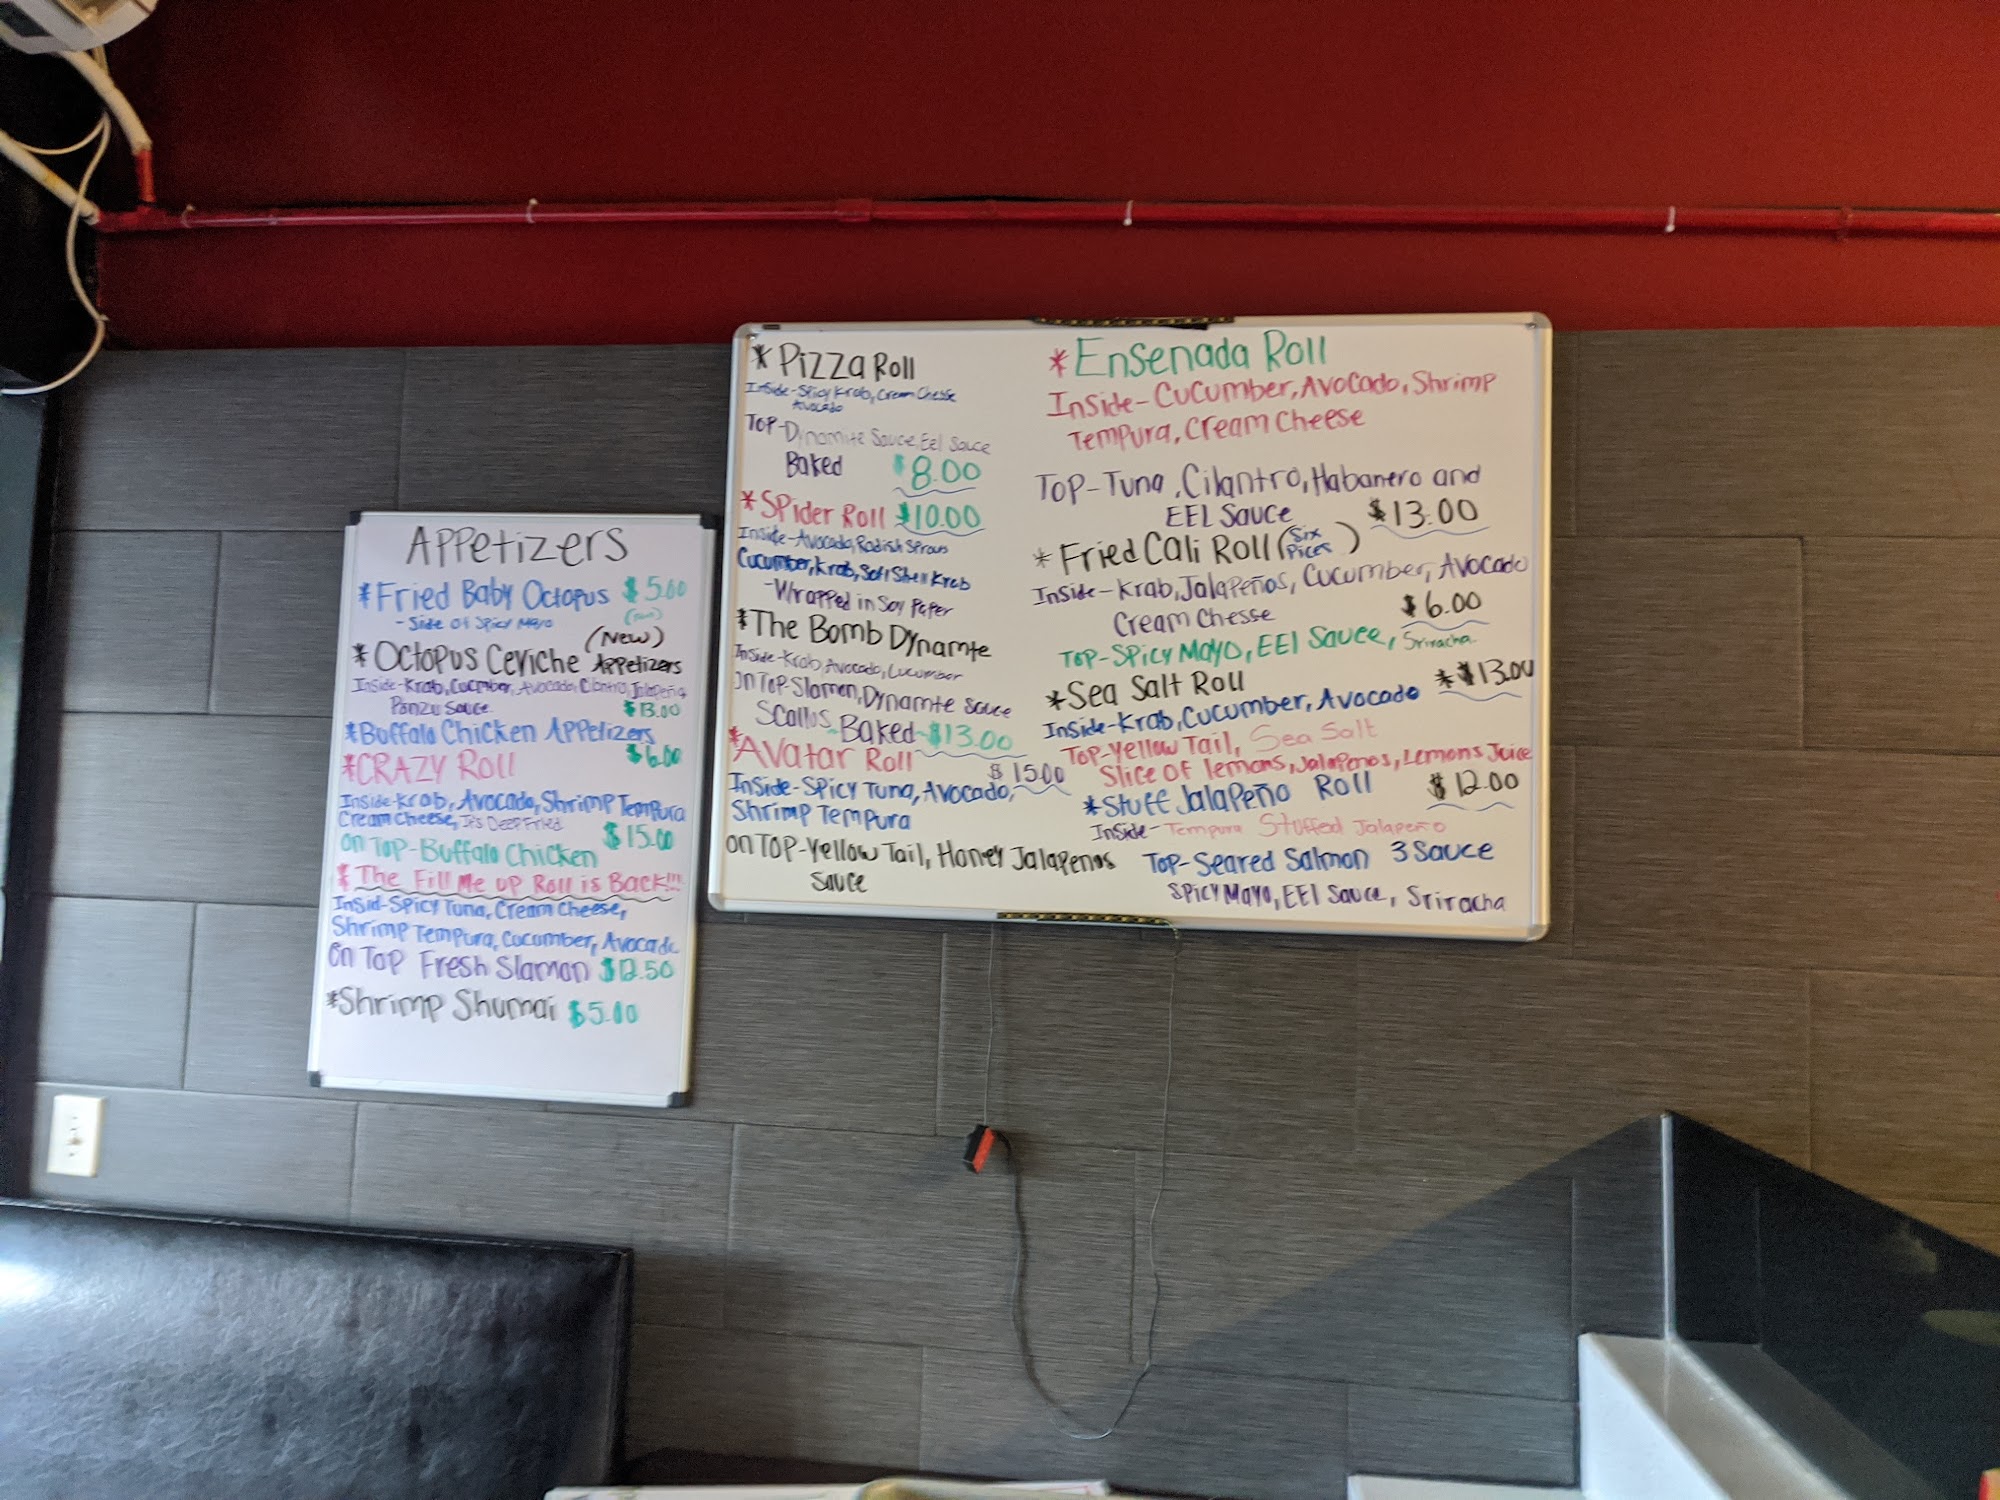 APPetizers
*Fried Baby Octopus $5.00
- Side Of Spicy Mayo
(New)
*Octopus Ceviche Appetizers
Inside-Krab, Cucmber, Avocado, Cilantro, Jalapeño
Ponzu Sauce $13.00
*Buffalo Chicken Appetizers
$6.00
*CRAZY Roll
Inside-Krab, Avocado, Shrimp Tempura
Cream Cheese, It's Deep Fried
$15.00
On Top-Buffalo Chicken
*The Fill Me up Roll is Back!!!
Insid-Spicy Tuna, Cream Cheese,
Shrimp Tempura, Cucumber, Avocado
On Top Fresh Slamon $12.50
*Shrimp Shumai $5.00
*Pizza Roll
Inside-Spicy Krab, Cream Chesse
Avocado
Top-Dynamite Sauce, Eel Sauce
Baked $8.00
*Spider Roll $10.00
Inside-Avocado, Radish Sprous
Cucumber, Krab, Soft Shell Krab
-Wrapped in Soy Paper
*The Bomb Dynamte
Inside-Krab, Avocado, Cucumber
On Top-Slamon, Dynamte Sauce
Scallus Baked $13.00
*Avatar Roll
$15.00
Inside-Spicy Tuna, Avocado,
Shrimp Tempura
on Top-Yellow Tail, Honey Jalapenos
Sauce
*Ensenada Roll
Inside-Cucumber, Avocado, Shrimp
Tempura, Cream Cheese
Top-Tuna, Cilantro, Habanero and
EEL Sauce $13.00
*Fried Cali Roll (Six Pices)
Inside-Krab, Jalapeños, Cucumber, Avocado
Cream Chesse $6.00
Top-Spicy Mayo, EEl Sauce, Sriracha
*Sea Salt Roll *$13.00
Inside-Krab, Cucumber, Avocado
Top-Yellow Tail, Sea Salt
Slice Of lemons, Jalapenos, Lemons Juice
*Stuff Jalapeño Roll $12.00
Inside-Tempura Stuffed Jalapeño
Top-Seared Salmon 3 Sauce
Spicy Mayo, EEl Sauce, Sriracha